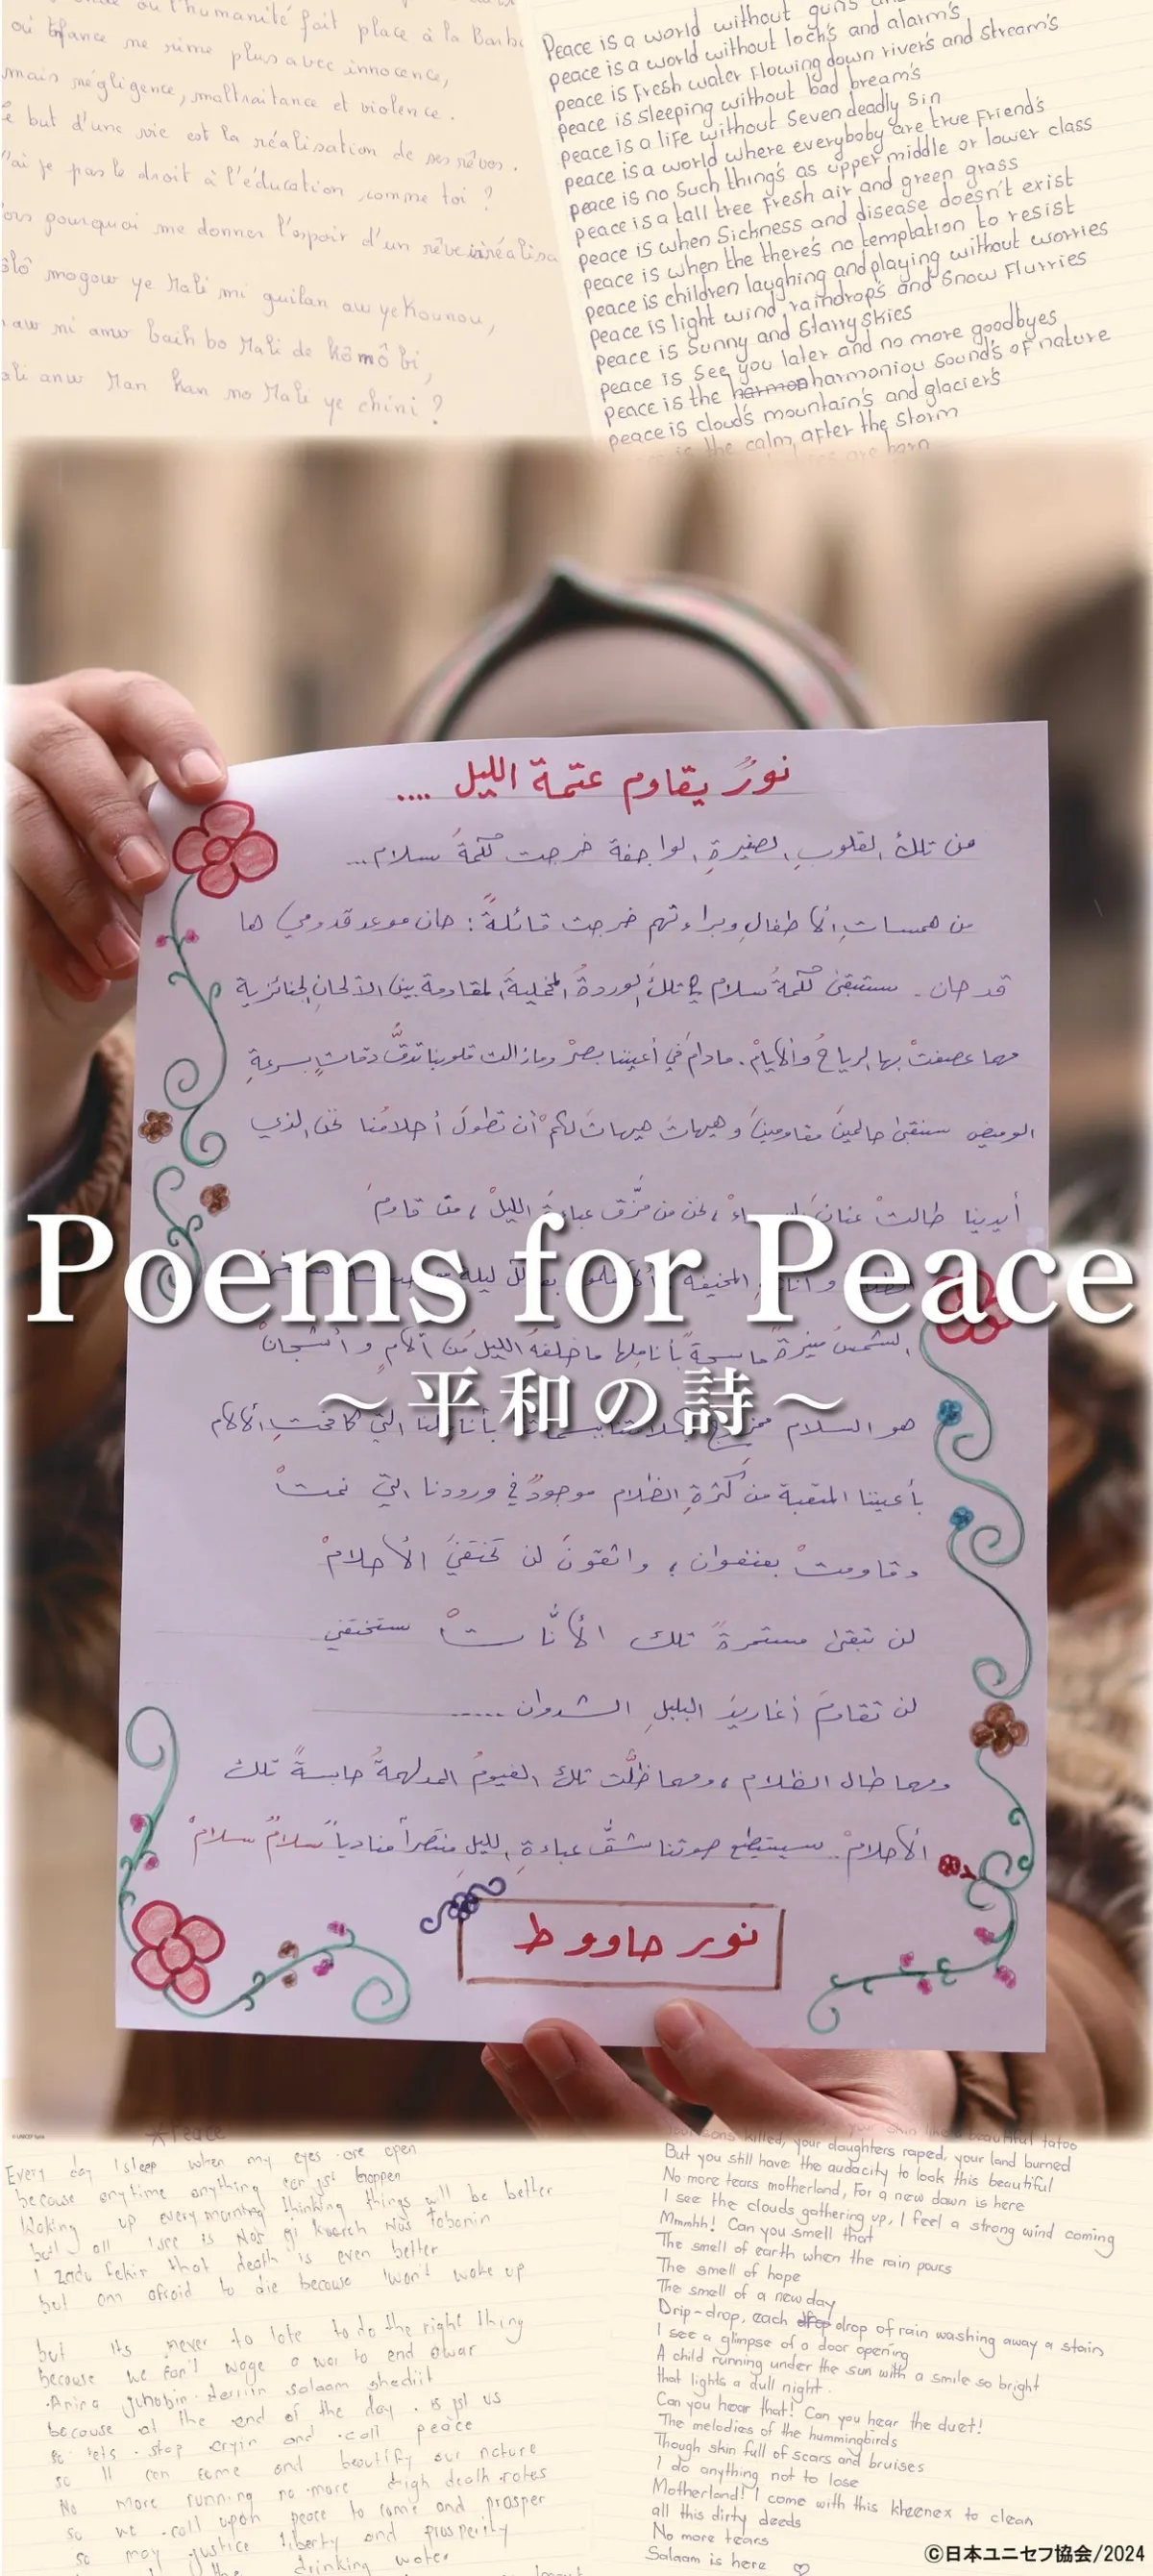 où l'humanité fait place à la Barba
où enfance ne rime plus avec innocence,
mais négligence, maltraitance et violence.
e but d'une vie est la réalisation de ses rêves.
ai je pas le droit à l'éducation comme toi ?
ors pourquoi me donner l'espoir d'un rêve
mogow ye Mali mi guilan aw ye kounou,
aw ni anw baih bo Mali de kômô bi,
Mali ye chini ?
Peace is a world without guns
peace is a world without lock's and alarm's
peace is fresh water flowing down river's and stream's
peace is sleeping without bad bream's
peace is a life without seven deadly sin
peace is a world where everyboby are true friend's
peace is no such thing's as upper, middle or lower class
peace is a tall tree fresh air and green grass
peace is when sickness and disease doesn't exist
peace is when the there's no temptation to resist
peace is children laughing and playing without worries
peace is light wind, raindrop's and snow flurries
peace is sunny and starry skies
peace is see you later and no more goodbyes
peace is the harmon harmoniou sound's of nature
peace is cloud's mountain's and glacier's
is the calm after the storm
are born
نورٌ يقاوم عتمة الليل ....
من تلك القلوبِ الصغيرةِ الواجفة خرجت كلمةُ سلام...
من همساتِ الأطفالِ وبراءتهم خرجت قائلةً : حان موعد قدومي ها
قد حان . ستبقى كلمةُ سلام هي تلك الوردةُ المخمليةُ المقاومة بين الألحانِ الجنائزية
مهما عصفتْ بها الرياحُ والأيامْ . مادام في أعيننا بصرْ ومازالت قلوبنا تدقُّ دقاتٍ بسرعةِ
الوميض سنبقى حالمينَ مقاومينَ وهيهاتَ هيهاتَ لكمْ أن تطولَ أحلامُنا نحن الذي
أيدينا طالتْ عنانَ نحن من مزَّق عباءةَ الليلْ ، من قاومَ
المخيفة ليلة
الشمسُ منيرةً ماسحةً بأناملها ما خلفهُ الليلُ من آلامٍ وأشجانْ
هو السلام التي كافحتِ الآلام
بأعيننا المتعبة من كثرةِ الظلام موجودٌ في ورودنا التي نمتْ
وقاومتْ بعنفوان ، واثقونَ لن تختفيَ الأحلامْ
لن تبقى مستمرةً تلك الأنَّاتْ ستختفي
لن تقاومَ أغاريدَ البلبلِ الشدوان .....
ومهما طال الظلام ، ومهما ظلَّت تلك الغيومُ المدلهمةُ حابسةً تلك
الأحلامْ . سيستطيع صوتنا شقَّ عباءةِ الليل منتصراً منادياً سلامٌ سلامْ
نور حاووط
Poems for Peace
～平和の詩～
© UNICEF Syria
*Peace
Every day I sleep when my eyes are open
because anytime anything can jst happen
Waking up every morning thinking things will be better
but all I see is Nas gi kuorch Nas tabanin
I zadu fekir that death is even better
but am afraid to die because I won't wake up
but its never to late to do the right thing
because we can't wage a war to end a war
Anina salaam shediit
because at the end of the day is jst us
so lets stop cryin and call peace
so it can come and beautify our nature
No more running no more high death rates
so we call upon peace to come and prosper
so may justice liberty and prosperity
the drinking water
your skin like a beautiful tatoo
sons killed, your daughters raped, your land burned
But you still have the audacity to look this beautiful
No more tears motherland, For a new dawn is here
I see the clouds gathering up, I feel a strong wind coming
Mmmhh! Can you smell that
The smell of earth when the rain pours
The smell of hope
The smell of a new day
Drip-drop, each drop drop of rain washing away a stain
I see a glimpse of a door opening
A child running under the sun with a smile so bright
that lights a dull night.
Can you hear that! Can you hear the duet!
The melodies of the hummingbirds
Though skin full of scars and bruises
I do anything not to lose
Motherland! I come with this kleenex to clean
all this dirty deeds
No more tears
Salaam is here ♡
©日本ユニセフ協会/2024